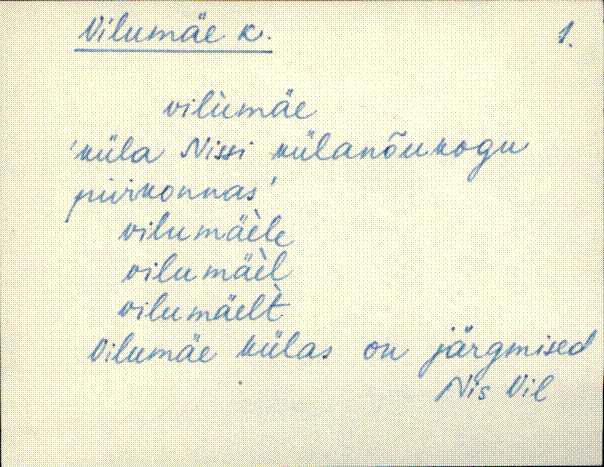 Vilumäe k. 1.
vilùmäe
'küla Nissi külanõukogu
piirkonnas'
vilumäèle
vilumäèl
vilumäelt̀
Vilumäe külas on järgmised
Nis Vil